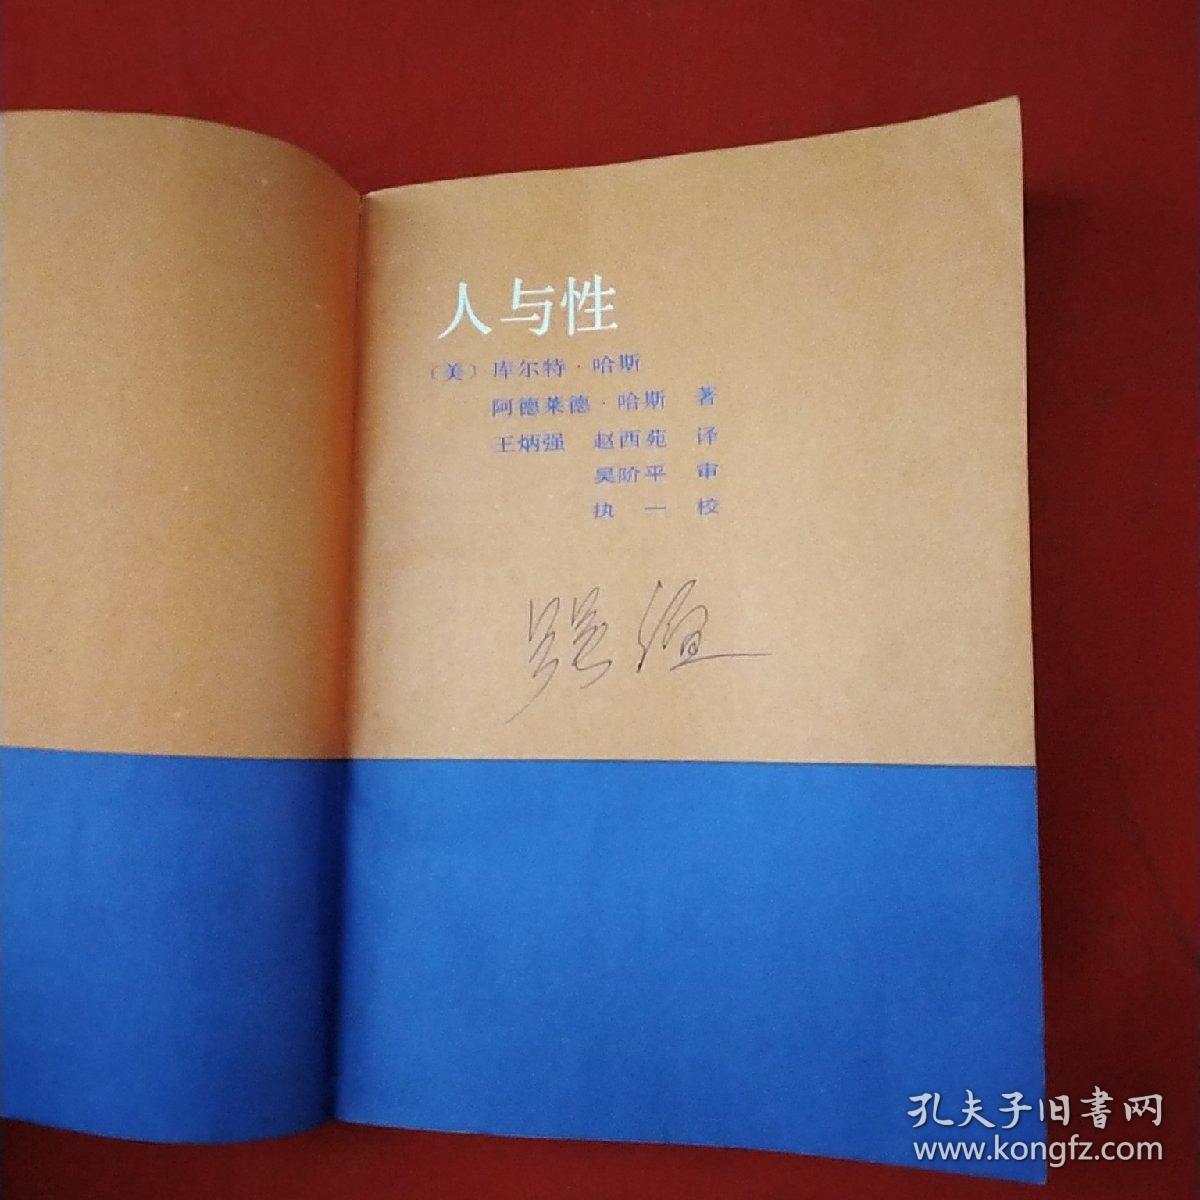 人与性
〔美〕库尔特·哈斯
阿德莱德·哈斯 著
王炳强 赵西苑 译
吴阶平 审
执一 校
孔夫子旧書网
www.kongfz.com